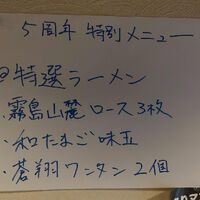 5周年 特別メニュー
@特選ラーメン
・霧島山麓ロース3枚
・和たまご味玉
・蒼翔ワンタン2個